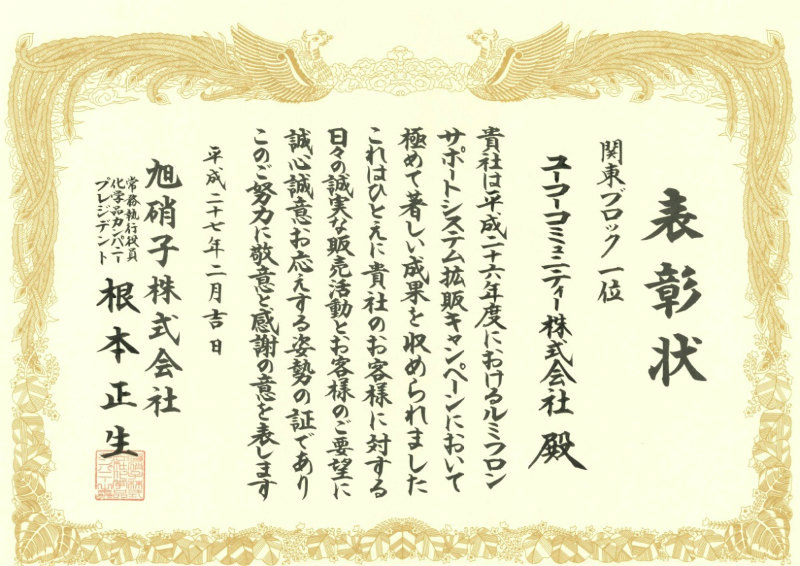 表彰状
関東ブロック一位
ユーコーコミュニティー株式会社 殿
貴社は平成二十六年度におけるルミフロン
サポートシステム拡販キャンペーンにおいて
極めて著しい成果を収められました
これはひとえに貴社のお客様に対する
日々の誠実な販売活動とお客様のご要望に
誠心誠意お応えする姿勢の証であり
このご努力に敬意と感謝の意を表します
平成二十七年二月吉日
旭硝子株式会社
常務執行役員
化学品カンパニー
プレジデント
根本正生